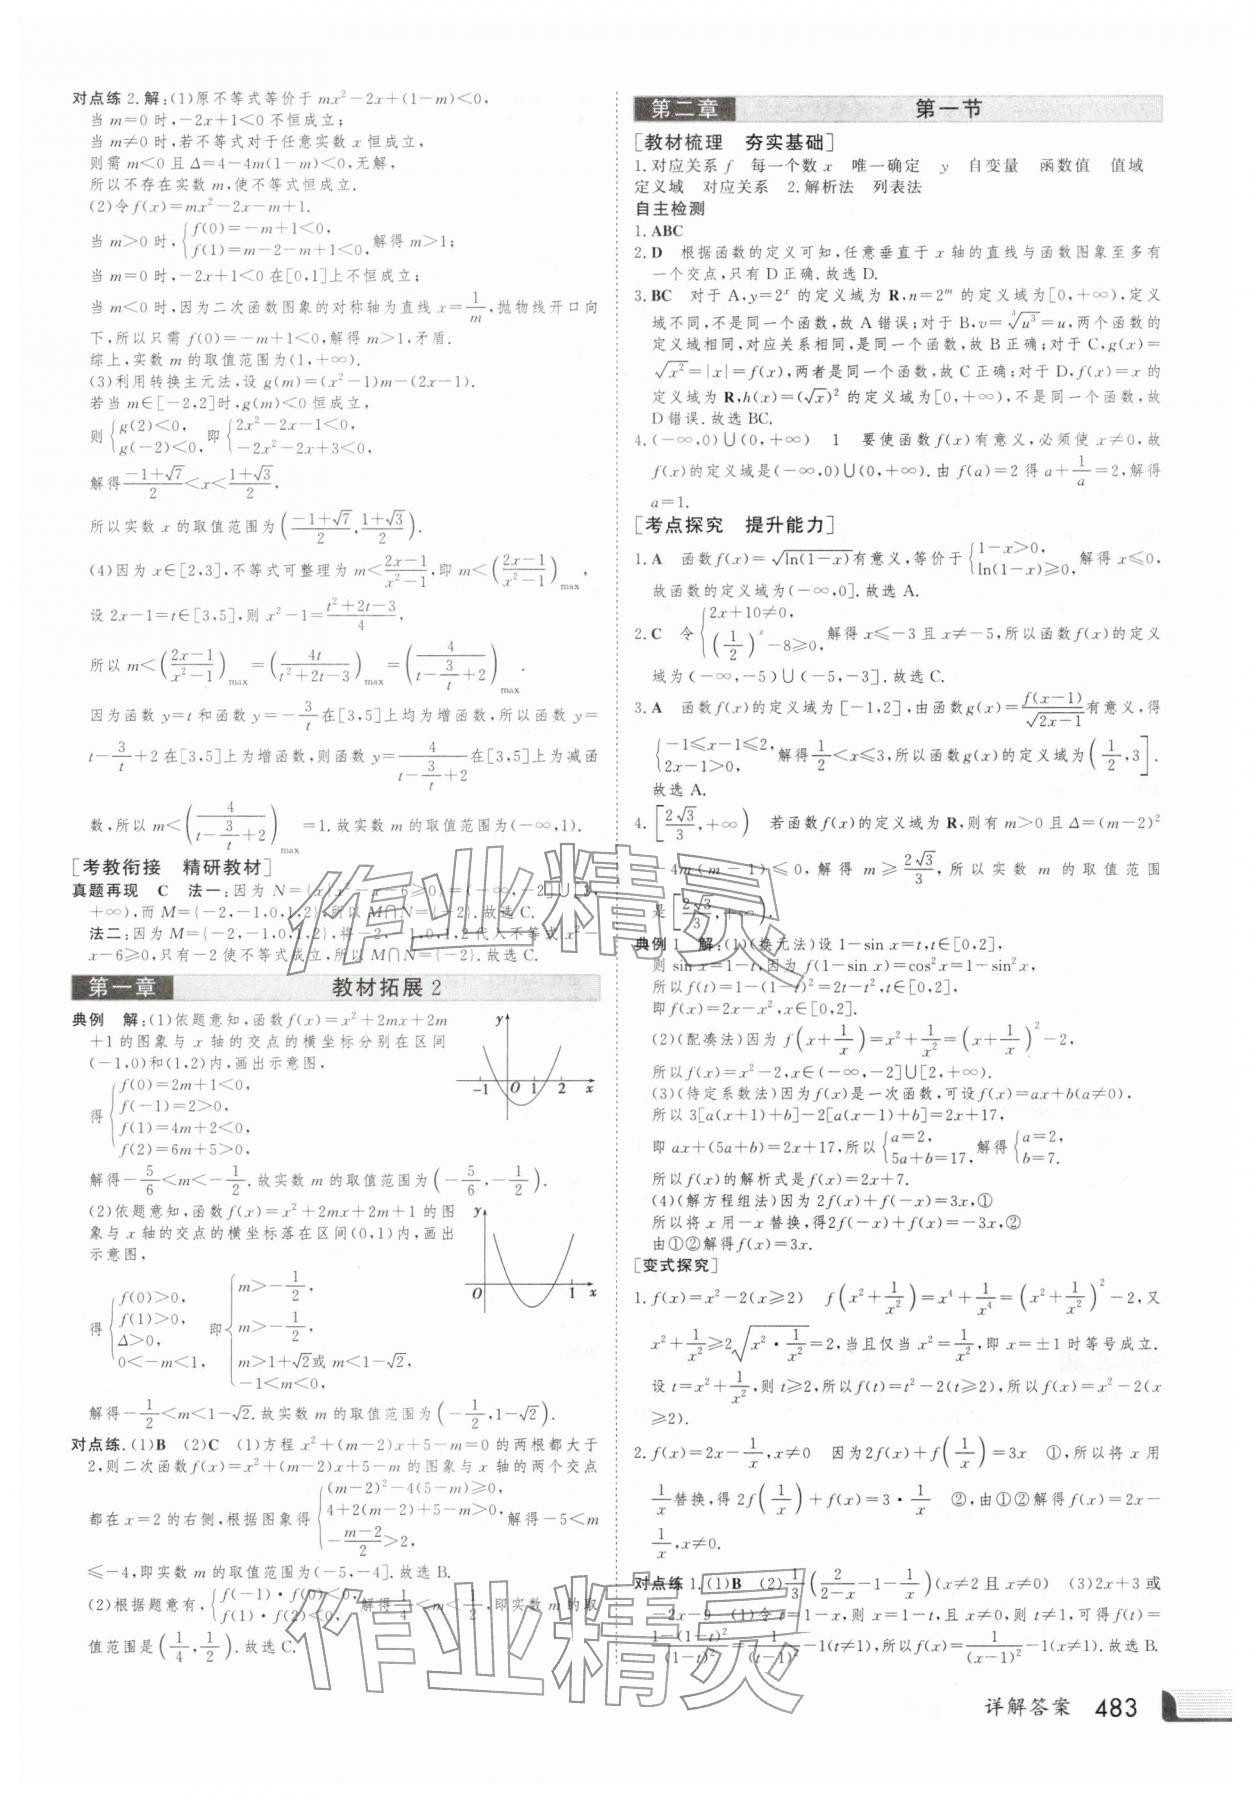 对点练2.解:(1)原不等式等价于mx²-2x+(1-m)<0,
当m=0时,-2x+1<0不恒成立;
当m≠0时,若不等式对于任意实数x恒成立,
则需m<0且Δ=4-4m(1-m)<0,无解,
所以不存在实数m,使不等式恒成立.
(2)令f(x)=mx²-2x-m+1.
当m>0时,{f(0)=-m+1<0, f(1)=m-2-m+1<0, 解得m>1;
当m=0时,-2x+1<0在[0,1]上不恒成立;
当m<0时,因为二次函数图象的对称轴为直线x=1/m,抛物线开口向
下,所以只需f(0)=-m+1<0,解得m>1,矛盾.
综上,实数m的取值范围为(1,+∞).
(3)利用转换主元法,设g(m)=(x²-1)m-(2x-1).
若当m∈[-2,2]时,g(m)<0恒成立,
则{g(2)<0, g(-2)<0, 即{2x²-2x-1<0, -2x²-2x+3<0,
解得(-1+√7)/2<x<(1+√3)/2,
所以实数x的取值范围为((-1+√7)/2,(1+√3)/2).
(4)因为x∈[2,3],不等式可整理为m<(2x-1)/(x²-1),即m<((2x-1)/(x²-1))max,
设2x-1=t∈[3,5],则x²-1=(t²+2t-3)/4,
所以m<((2x-1)/(x²-1))max=(4t/(t²+2t-3))max=(4/(t-3/t+2))max.
因为函数y=t和函数y=-3/t在[3,5]上均为增函数,所以函数y=
t-3/t+2在[3,5]上为增函数,则函数y=4/(t-3/t+2)在[3,5]上为减函
数,所以m<(4/(t-3/t+2))max=1.故实数m的取值范围为(-∞,1).
[考教衔接 精研教材]
真题再现 C 法一:因为N={x|x²-x-6≥0}=(-∞,-2]∪[3,
+∞),而M={-2,-1,0,1,2},所以M∩N={-2}.故选C.
法二:因为M={-2,-1,0,1,2},将-2,-1,0,1,2代入不等式x²-
x-6≥0,只有-2使不等式成立,所以M∩N={-2}.故选C.
第一章 教材拓展2
典例 解:(1)依题意知,函数f(x)=x²+2mx+2m
+1的图象与x轴的交点的横坐标分别在区间
(-1,0)和(1,2)内,画出示意图,
得{f(0)=2m+1<0,
f(-1)=2>0,
f(1)=4m+2<0,
f(2)=6m+5>0,
y -1 O 1 2 x
解得-5/6<m<-1/2.故实数m的取值范围为(-5/6,-1/2).
(2)依题意知,函数f(x)=x²+2mx+2m+1的图
象与x轴的交点的横坐标落在区间(0,1)内,画出
示意图,
y O 1 x
得{f(0)>0, f(1)>0, Δ>0, 0<-m<1, 即{m>-1/2, m>-1/2, m>1+√2或m<1-√2, -1<m<0,
解得-1/2<m<1-√2.故实数m的取值范围为(-1/2,1-√2).
对点练.(1)B (2)C (1)方程x²+(m-2)x+5-m=0的两根都大于
2,则二次函数f(x)=x²+(m-2)x+5-m的图象与x轴的两个交点
都在x=2的右侧,根据图象得{(m-2)²-4(5-m)≥0, 4+2(m-2)+5-m>0, -(m-2)/2>2, 解得-5<m
≤-4,即实数m的取值范围为(-5,-4].故选B.
(2)根据题意有,{f(-1)·f(0)<0, f(1)·f(2)<0, 解得1/4<m<1/2,即实数m的取
值范围是(1/4,1/2).故选C.
第二章 第一节
[教材梳理 夯实基础]
1.对应关系f 每一个数x 唯一确定 y 自变量 函数值 值域
定义域 对应关系 2.解析法 列表法
自主检测
1.ABC
2.D 根据函数的定义可知,任意垂直于x轴的直线与函数图象至多有
一个交点,只有D正确.故选D.
3.BC 对于A,y=2ˣ的定义域为R,n=2ᵐ的定义域为[0,+∞),定义
域不同,不是同一个函数,故A错误;对于B,v=³√u³=u,两个函数的
定义域相同,对应关系相同,是同一个函数,故B正确;对于C,g(x)=
√x²=|x|=f(x),两者是同一个函数,故C正确;对于D,f(x)=x的
定义域为R,h(x)=(√x)²的定义域为[0,+∞),不是同一个函数,故
D错误.故选BC.
4.(-∞,0)∪(0,+∞) 1 要使函数f(x)有意义,必须使x≠0,故
f(x)的定义域是(-∞,0)∪(0,+∞).由f(a)=2得a+1/a=2,解得
a=1.
[考点探究 提升能力]
1.A 函数f(x)=√ln(1-x)有意义,等价于{1-x>0, ln(1-x)≥0, 解得x≤0,
故函数的定义域为(-∞,0].故选A.
2.C 令{2x+10≠0, (1/2)ˣ-8≥0, 解得x≤-3且x≠-5,所以函数f(x)的定义
域为(-∞,-5)∪(-5,-3].故选C.
3.A 函数f(x)的定义域为[-1,2],由函数g(x)=f(x-1)/√(2x-1)有意义,得
{-1≤x-1≤2, 2x-1>0, 解得1/2<x≤3,所以函数g(x)的定义域为(1/2,3].
故选A.
4.[2√3/3,+∞) 若函数f(x)的定义域为R,则有m>0且Δ=(m-2)²
-4m(m-1)≤0,解得m≥2√3/3,所以实数m的取值范围
是[2√3/3,+∞).
典例1 解:(1)(换元法)设1-sin x=t,t∈[0,2],
则sin x=1-t,因为f(1-sin x)=cos²x=1-sin²x,
所以f(t)=1-(1-t)²=2t-t²,t∈[0,2],
即f(x)=2x-x²,x∈[0,2].
(2)(配凑法)因为f(x+1/x)=x²+1/x²=(x+1/x)²-2,
所以f(x)=x²-2,x∈(-∞,-2]∪[2,+∞).
(3)(待定系数法)因为f(x)是一次函数,可设f(x)=ax+b(a≠0),
所以3[a(x+1)+b]-2[a(x-1)+b]=2x+17,
即ax+(5a+b)=2x+17,所以{a=2, 5a+b=17, 解得{a=2, b=7.
所以f(x)的解析式是f(x)=2x+7.
(4)(解方程组法)因为2f(x)+f(-x)=3x,①
所以将x用-x替换,得2f(-x)+f(x)=-3x,②
由①②解得f(x)=3x.
[变式探究]
1.f(x)=x²-2(x≥2) f(x²+1/x²)=x⁴+1/x⁴=(x²+1/x²)²-2,又
x²+1/x²≥2√(x²·1/x²)=2,当且仅当x²=1/x²,即x=±1时等号成立.
设t=x²+1/x²,则t≥2,所以f(t)=t²-2(t≥2),所以f(x)=x²-2(x
≥2).
2.f(x)=2x-1/x,x≠0 因为2f(x)+f(1/x)=3x ①,所以将x用
1/x替换,得2f(1/x)+f(x)=3·1/x ②,由①②解得f(x)=2x-
1/x,x≠0.
对点练1.(1)B (2)1/3(2/(2-x)-1-1/x)(x≠2且x≠0) (3)2x+3或
-2x-9 (1)令t=1-x,则x=1-t,且x≠0,则t≠1,可得f(t)=
(1-(1-t)²)/(1-t)²=1/(t-1)²-1(t≠1),所以f(x)=1/(x-1)²-1(x≠1).故选B.
详解答案 483
作业精灵
作业精灵